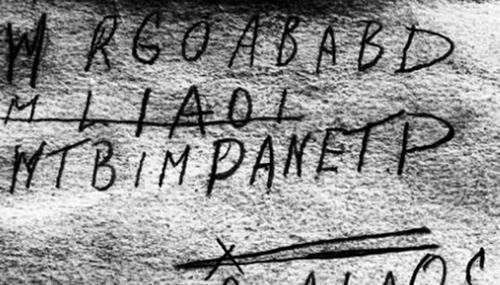 W RGOABABD
MLIAOI
WTBIMPANETP